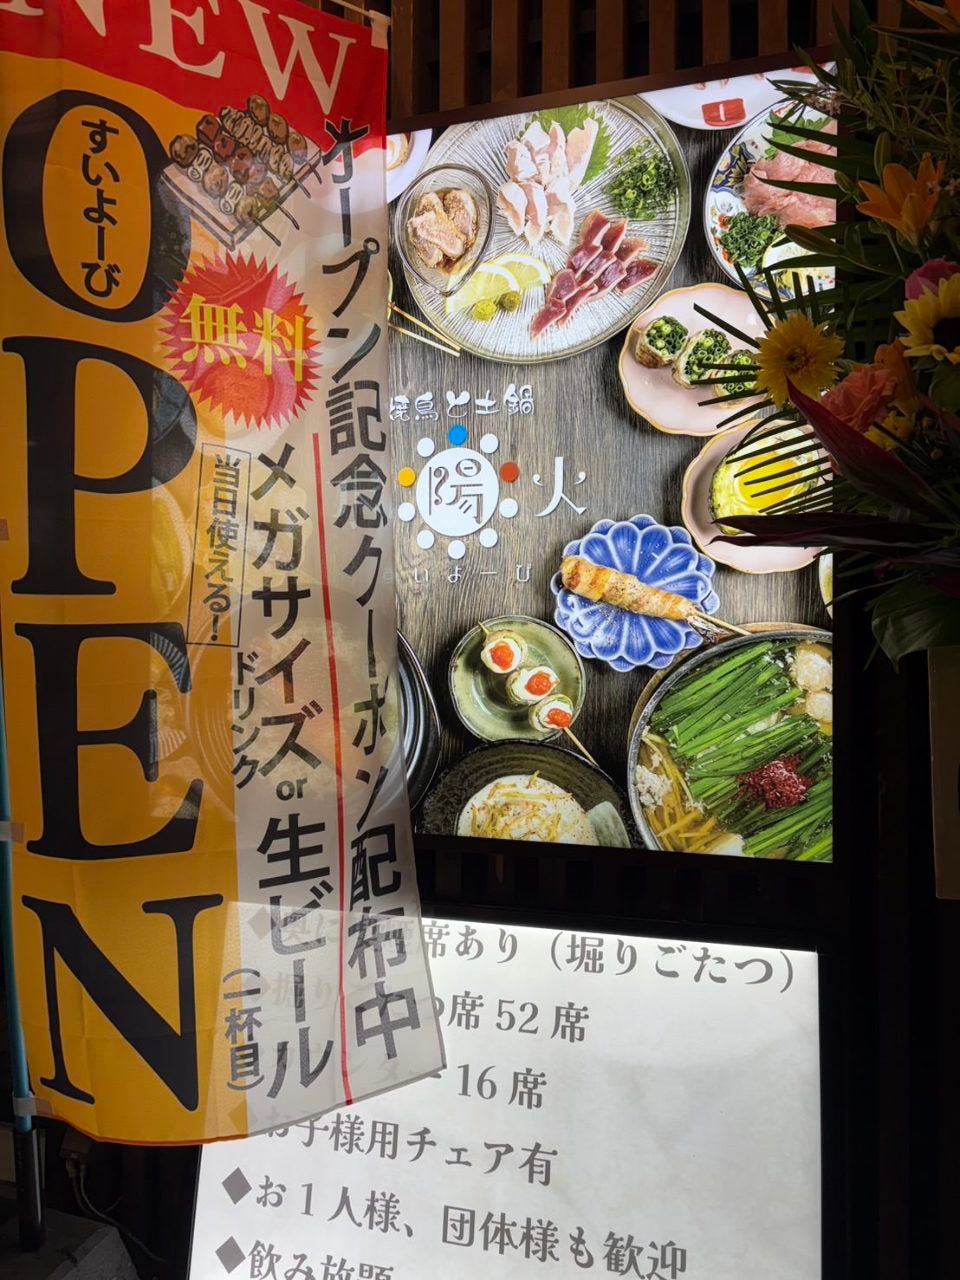 NEW
OPEN
すいよーび
オープン記念クーポン配布中
無料
メガサイズ
ドリンク
or
生ビール
(一杯目)
当日使える!
焼鳥と土鍋
陽
火
いよーび
席あり (堀りごたつ)
席 52 席
16 席
お子様用チェア有
◆お1人様、団体様も歓迎
◆飲み放題